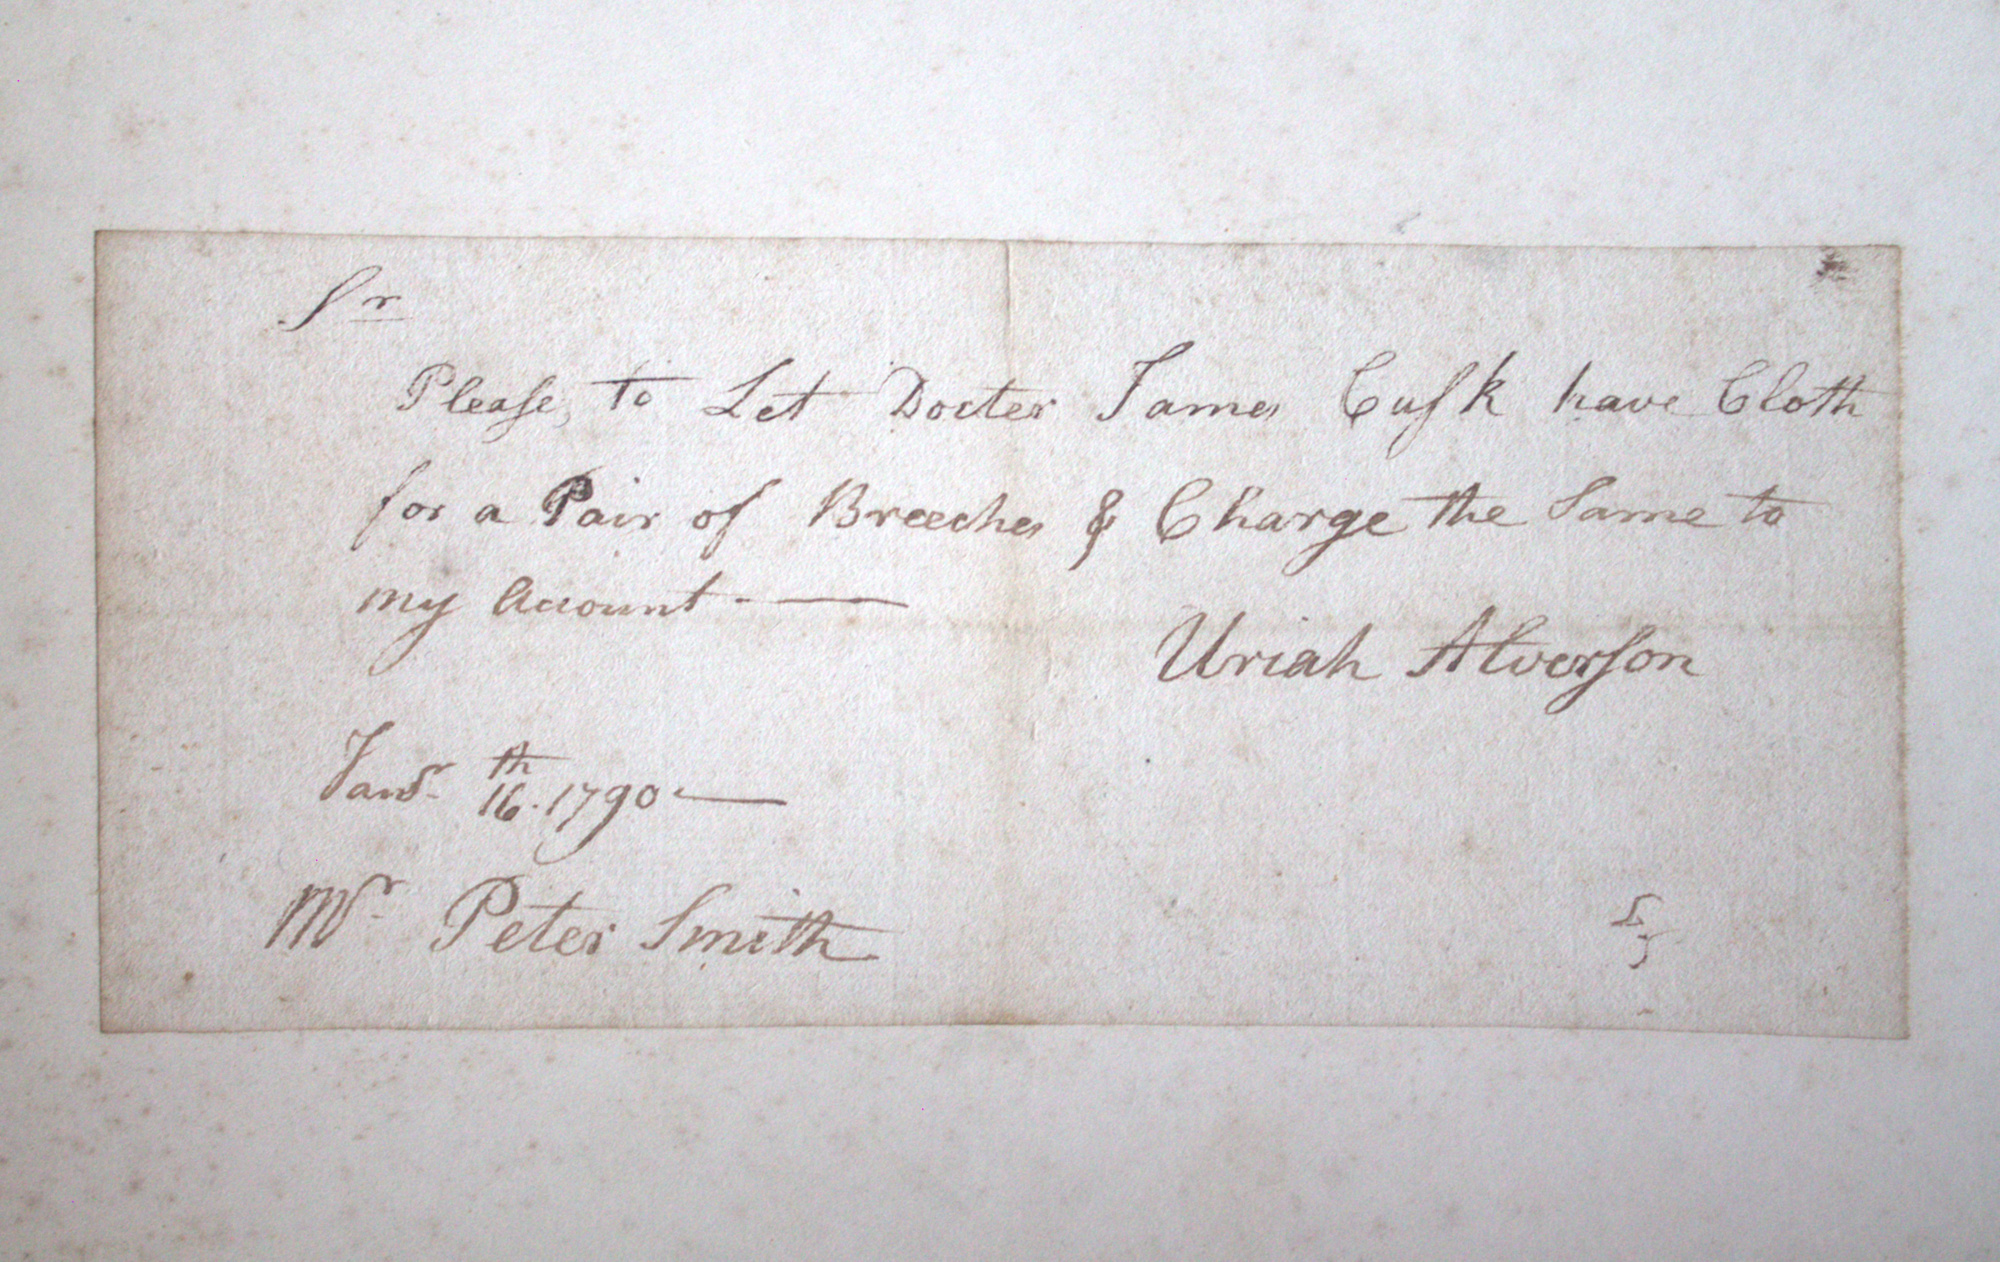 Sr
Please, to Let Docter James Cusk have Cloth
for a Pair of Breeches & Charge the Same to
my Account.—
Uriah Alverson
Janr. 16th. 1790.—
Mr. Peter Smith